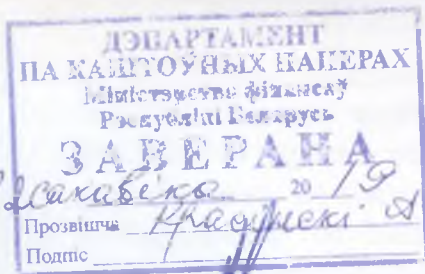 ДЭПАРТАМЕНТ
ПА КАШТОЎНЫХ ПАПЕРАХ
Міністэрства фінансаў
Рэспублікі Беларусь
ЗАВЕРАНА
20 19
Прозвішча
Подпіс